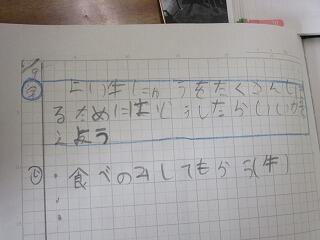 よい生にゅうをたくさんしぼ
るためにはどうしたらいいか考
えよう
・食べのみしてもらう(牛)
・
・